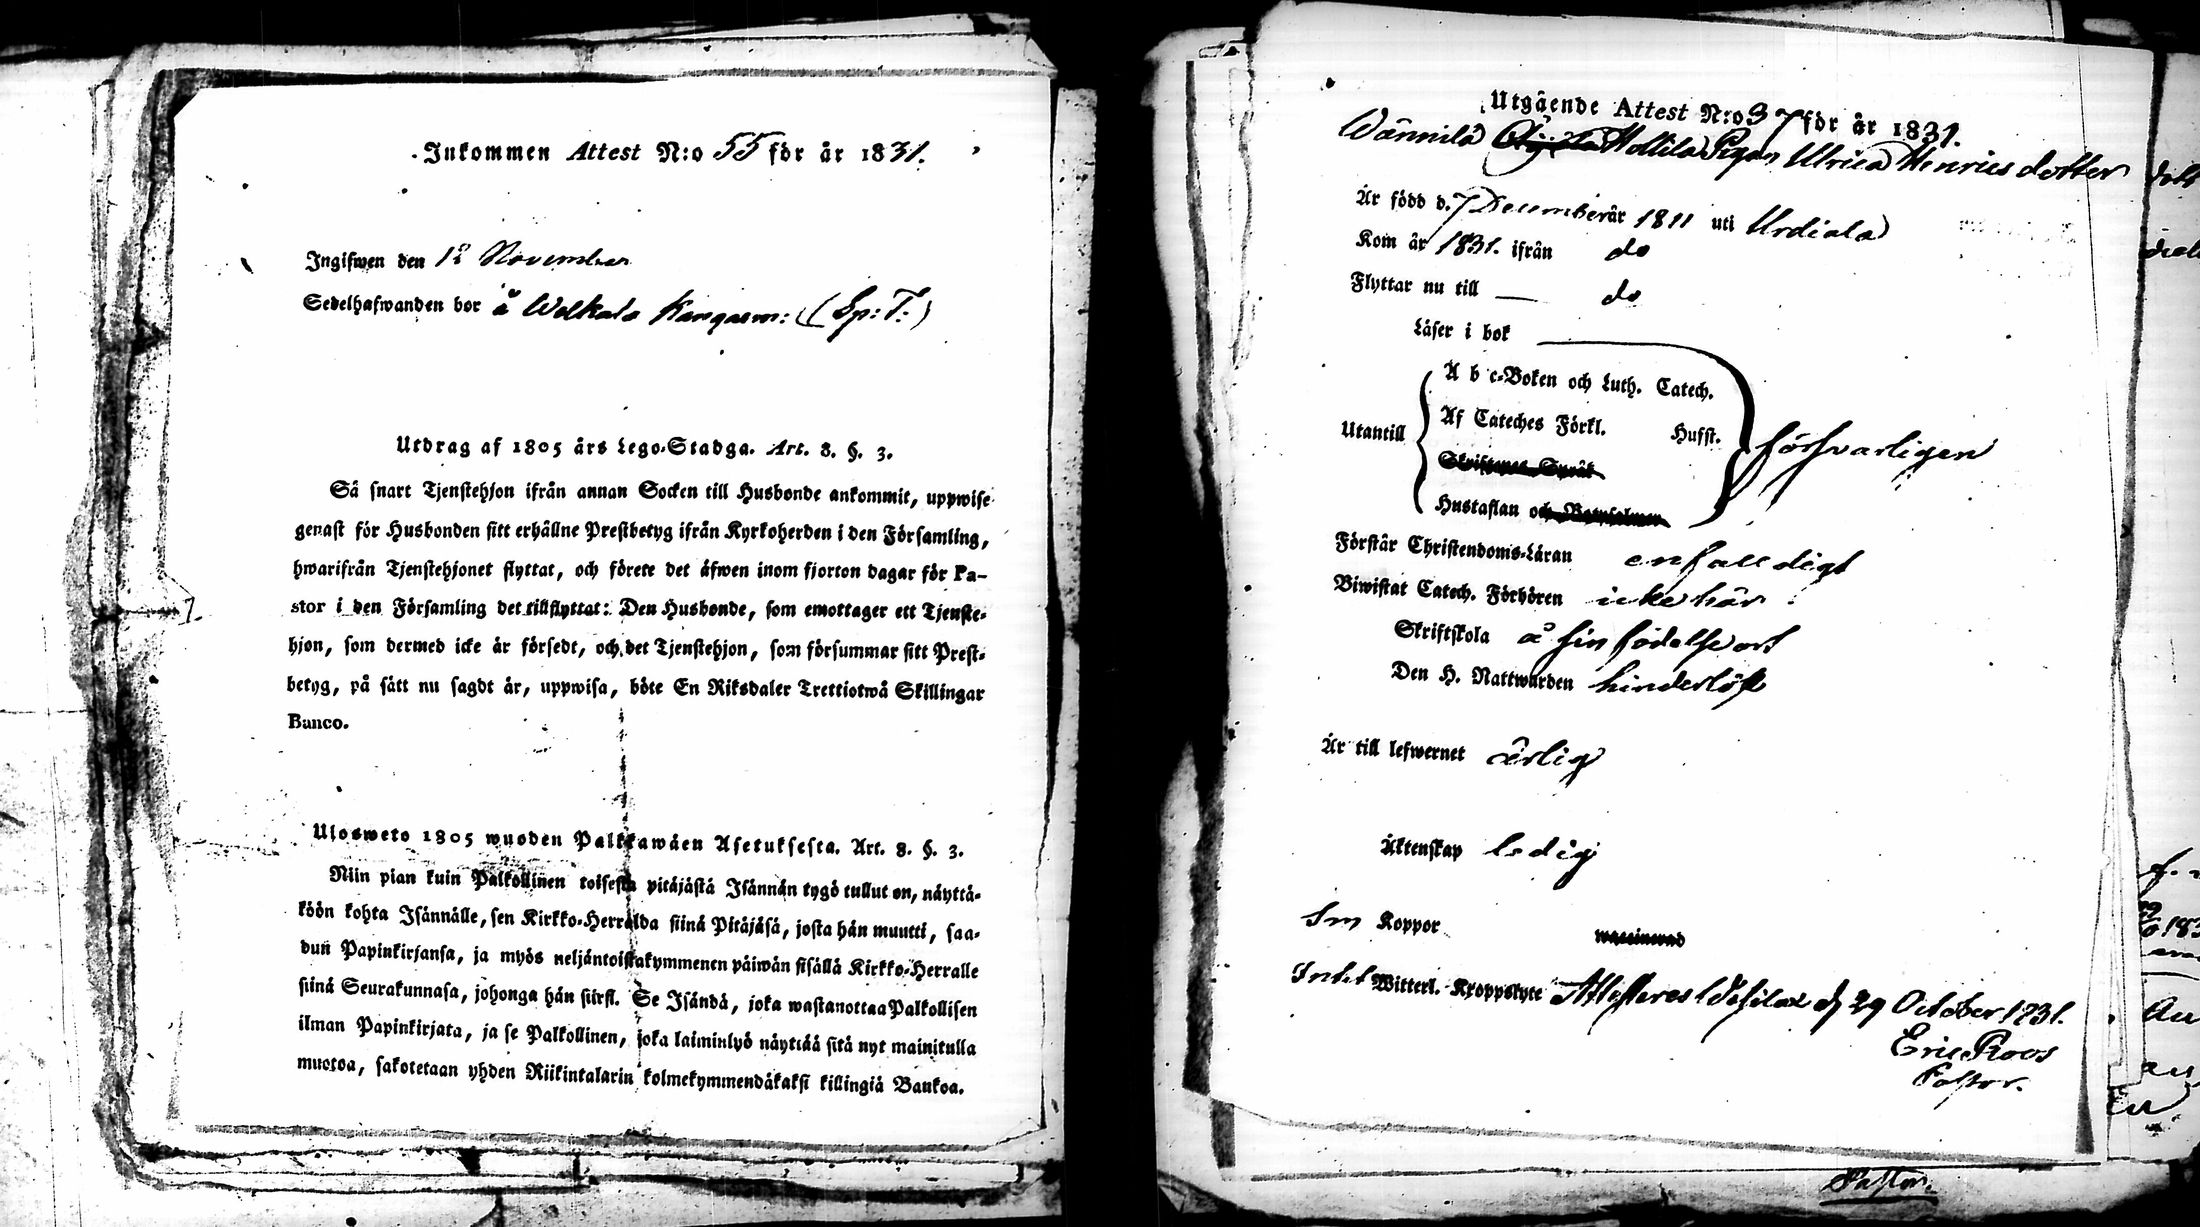 Inkommen Attest N:o 55 för år 1831.
Ingifwen den 12 November
Sedelhafwanden bor å Wälkälä Kangasm: (Sp: T:)
Utdrag af 1805 års Lego-Stadga. Art. 8. §. 3.
Så snart Tjenstehjon ifrån annan Socken till Husbonde ankommit, uppwise
genast för Husbonden sitt erhållne Prestbetyg ifrån Kyrkoherden i den Församling,
hwarifrån Tjenstehjonet flyttat, och förete det äfwen inom fjorton dagar för Pa-
stor i den Församling det tillflyttat: Den Husbonde, som emottager ett Tjenste-
hjon, som dermed icke är försedt, och det Tjenstehjon, som försummar sitt Prest-
betyg, på sätt nu sagdt är, uppwisa, böte En Riksdaler Trettiotwå Skillingar
Banco.
Ulosweto 1805 wuoden Palkkawäen Asetuksesta. Art. 8. §. 3.
Niin pian kuin Palkollinen toisesta pitäjästä Isännän tygö tullut on, näyttä-
köön kohta Isännälle, sen Kirkko-Herralda siinä Pitäjäsä, josta hän muutti, saa-
dun Papinkirjansa, ja myös neljäntoistakymmenen päiwän sisällä Kirkko-Herralle
siinä Seurakunnasa, johonga hän siirsi. Se Isändä, joka wastanottaa Palkollisen
ilman Papinkirjata, ja se Palkollinen, joka laiminlyö näyttää sitä nyt mainitulla
muotoa, sakotetaan yhden Riikintalarin kolmekymmendäkaksi killingiä Bankoa.
Utgående Attest N:o 37 för år 1831.
Wännilä Mollila Pigan Ulrica Henricsdotter
Är född d. 7 December år 1811 uti Urdiala
Kom år 1831. ifrån do
Flyttar nu till — do
Läser i bok
A b c-Boken och Luth. Catech.
Utantill Af Cateches Förkl. Husst. försvarligen
Skriftenes Språk
Hustaflan och Botpsalmer
Förstår Christendoms-Läran enfalldigt
Biwistat Catech. Förhören icke här
Skriftskola å sin födelse ort
Den H. Nattwarden hinderlöst
Är till lefwernet ärlig
Äktenskap ledig
Koppor waccinerad
Intet Witterl. Kroppslyte Attesteras d 29 October 1831.
Eric Roos
Pastor.
Pastor.